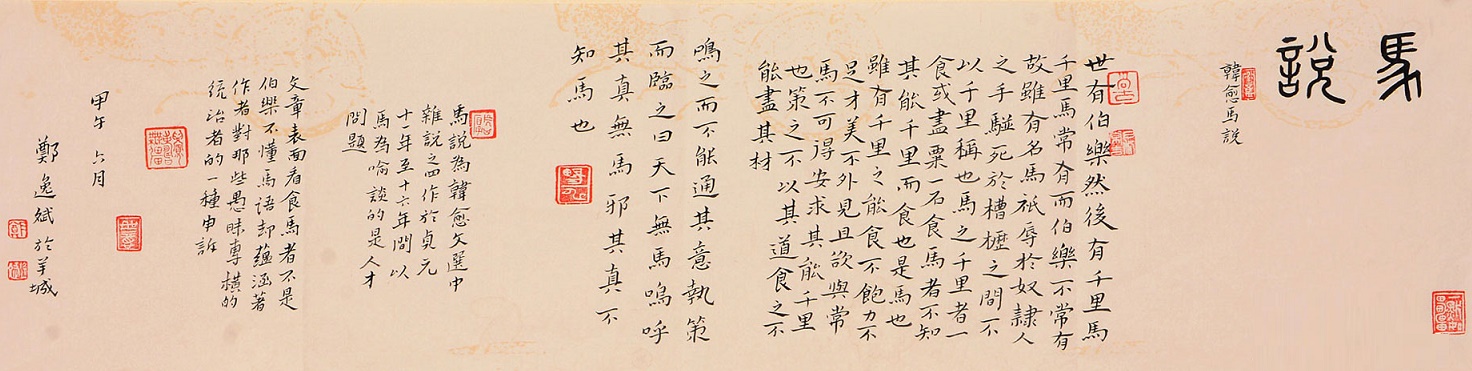 馬說
韓愈馬說
世有伯樂然後有千里馬
千里馬常有而伯樂不常有
故雖有名馬祇辱於奴隸人
之手駢死於槽櫪之間不
以千里稱也馬之千里者一
食或盡粟一石食馬者不知
其能千里而食也是馬也
雖有千里之能食不飽力不
足才美不外見且欲與常
馬不可得安求其能千里
也策之不以其道食之不
能盡其材
鳴之而不能通其意執策
而臨之曰天下無馬嗚呼
其真無馬邪其真不
知馬也
馬說為韓愈文選中
雜說之四作於貞元
十一年至十六年間以
馬為喻談的是人才
問題
文章表面看食馬者不是
伯樂不懂馬語却蘊涵著
作者對那些愚昧專橫的
統治者的一種申訴
甲午六月
鄭逸斌於羊城